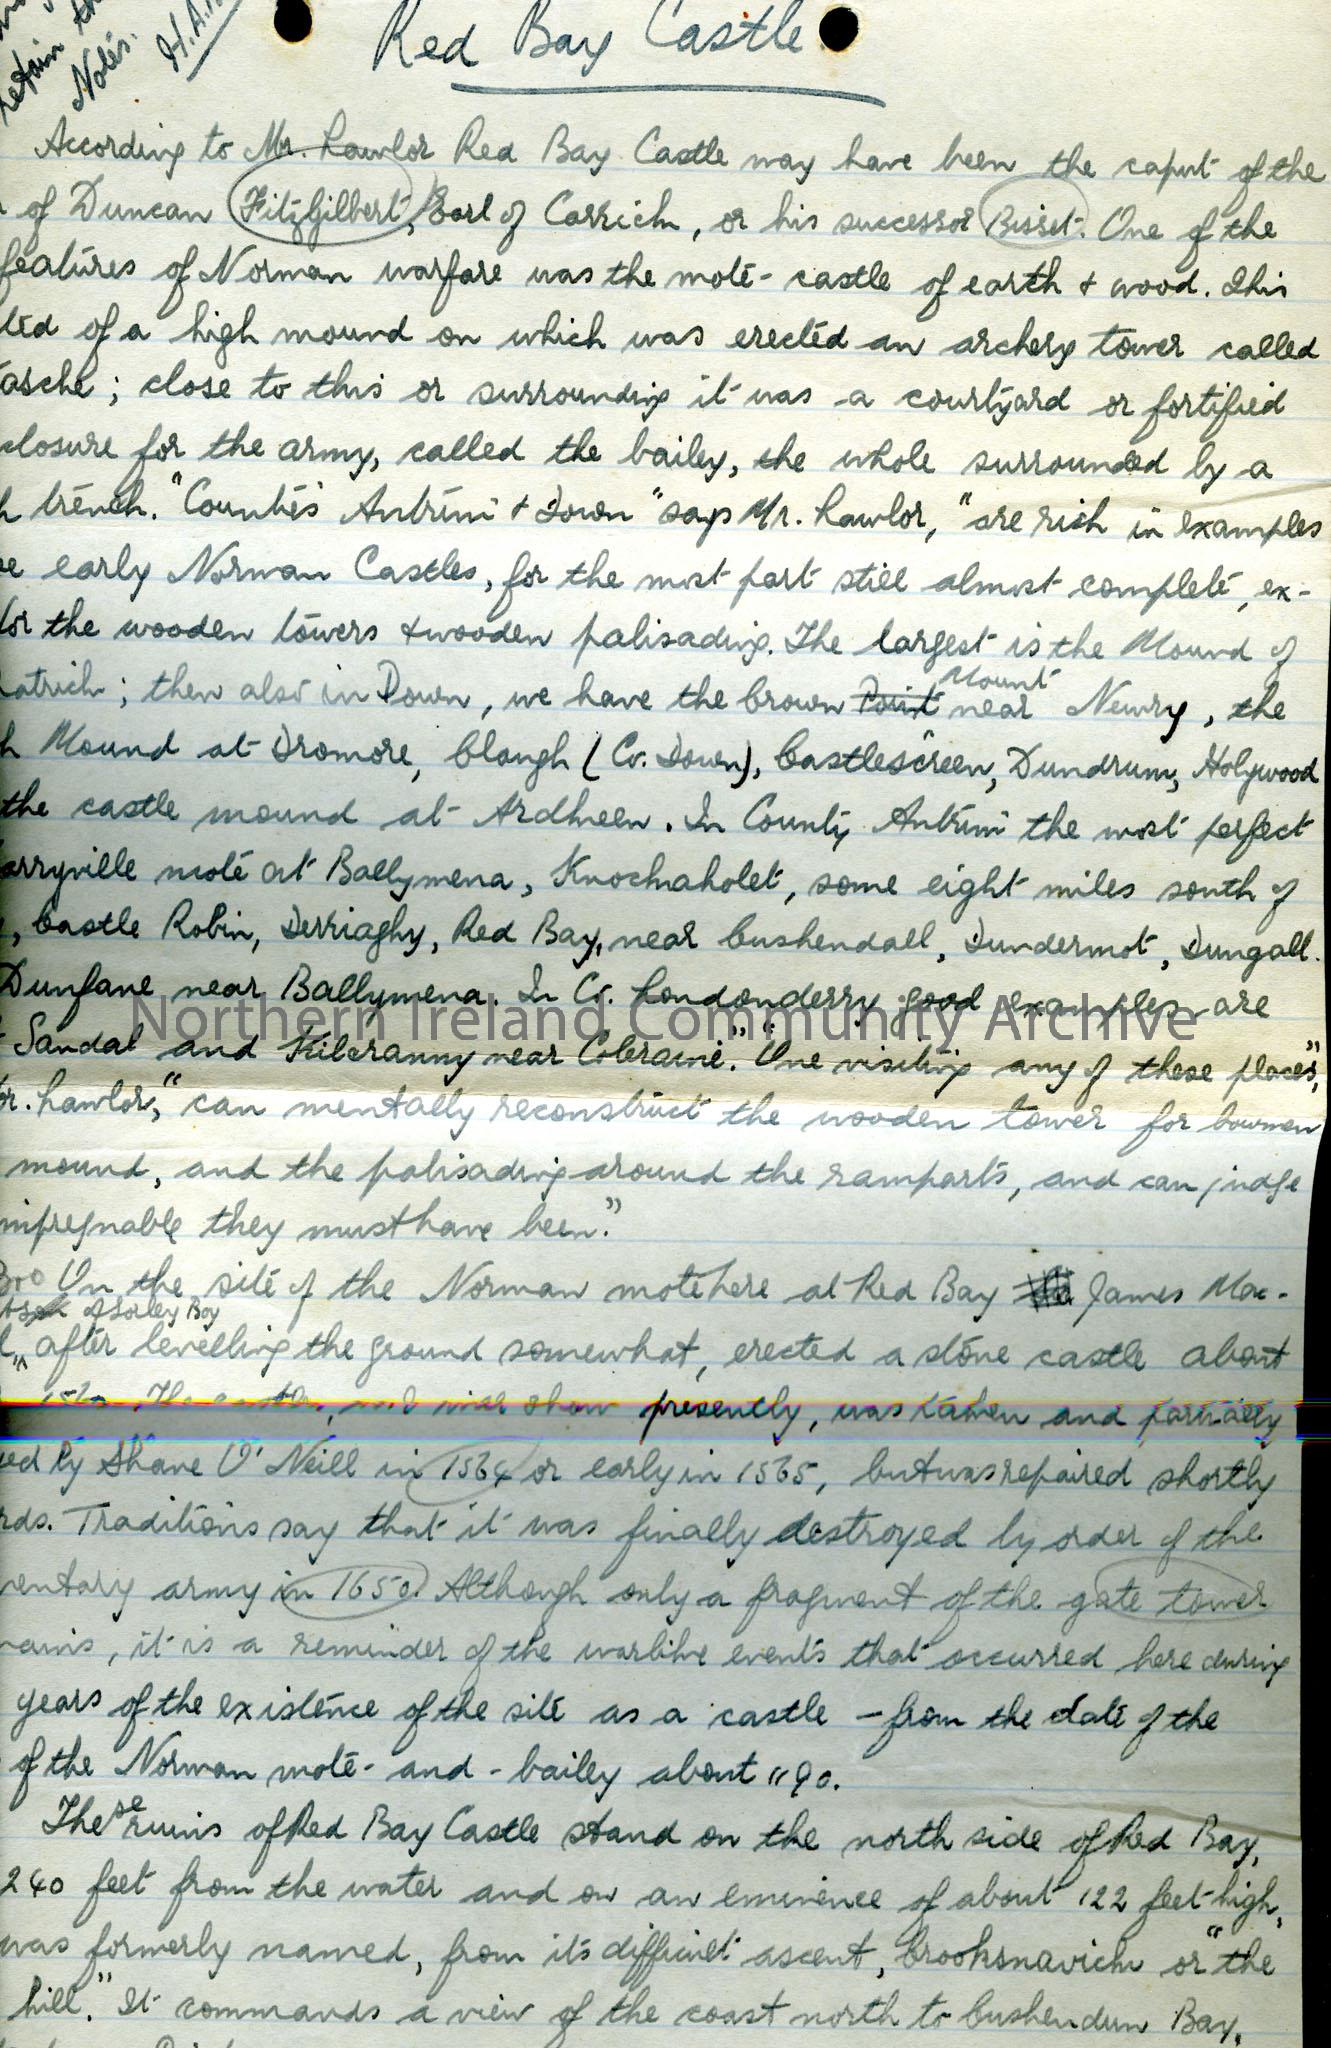 retain th
Notes.
H.A.
Red Bay Castle
According to Mr. Lawlor Red Bay Castle may have been the caput of the
of Duncan FitzGilbert, Earl of Carrick, or his successor Bisset. One of the
features of Norman warfare was the mote-castle of earth & wood. This
ted of a high mound on which was erected an archery tower called
asche; close to this or surrounding it was a courtyard or fortified
closure for the army, called the bailey, the whole surrounded by a
h trench. "Counties Antrim & Down" says Mr. Lawlor, "are rich in examples
e early Norman Castles, for the most part still almost complete, ex-
for the wooden towers & wooden palisading. The largest is the Mound of
atrick; then also in Down, we have the Crown Point Mount near Newry, the
h Mound at Dromore, Clough (Co. Down), Castlescreen, Dundrum, Holywood
the castle mound at Ardkeen. In County Antrim the most perfect
arryville mote at Ballymena, Knockaholet, some eight miles south of
, Castle Robin, Derriaghy, Red Bay, near Cushendall, Dundermot, Dungall.
Dunfane near Ballymena. In Co. Londonderry good examples are
Northern Ireland Community Archive
Sandal and Kilcranny near Coleraine." "One visiting any of these places",
r. Lawlor, "can mentally reconstruct the wooden tower for bowmen
mound, and the palisading around the ramparts, and can judge
impregnable they must have been."
Bro On the site of the Norman mote here at Red Bay James Mac-
of Sorley Boy
after levelling the ground somewhat, erected a stone castle about
The castle, will show presently, was taken and partially
ed by Shane O'Neill in 1564 or early in 1565, but was repaired shortly
rds. Traditions say that it was finally destroyed by order of the
entary army in 1650. Although only a fragment of the gate tower
ains, it is a reminder of the warlike events that occurred here during
years of the existence of the site as a castle - from the date of the
of the Norman mote-and-bailey about 1190.
These ruins of Red Bay Castle stand on the north side of Red Bay,
240 feet from the water and on an eminence of about 122 feet high,
was formerly named, from its difficult ascent, Crooknavick or "the
hill." It commands a view of the coast north to Cushendun Bay,